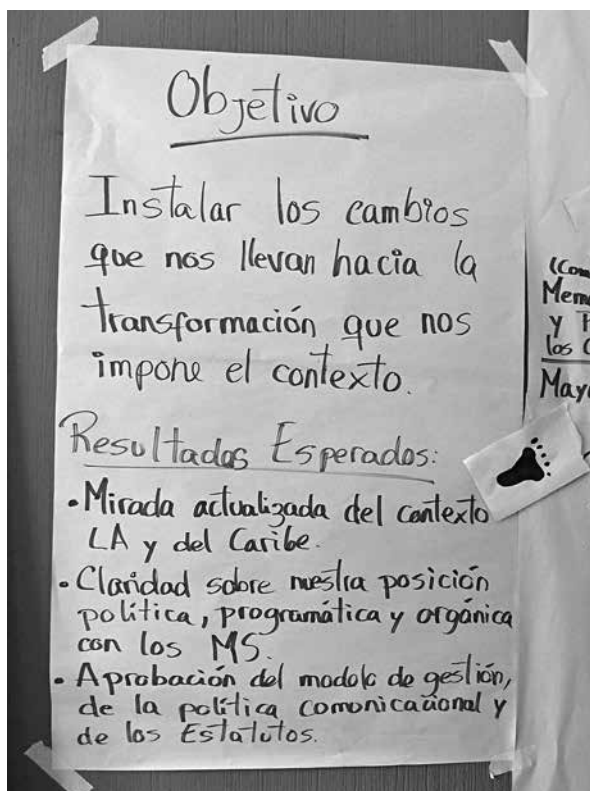 Objetivo
Instalar los cambios
que nos llevan hacia la
transformación que nos
impone el contexto.
Resultados Esperados:
• Mirada actualizada del contexto
LA y del Caribe.
• Claridad sobre nuestra posición
política, programática y orgánica
con los MS.
• Aprobación del modelo de gestión,
de la política comunicacional y
de los Estatutos.
y
los